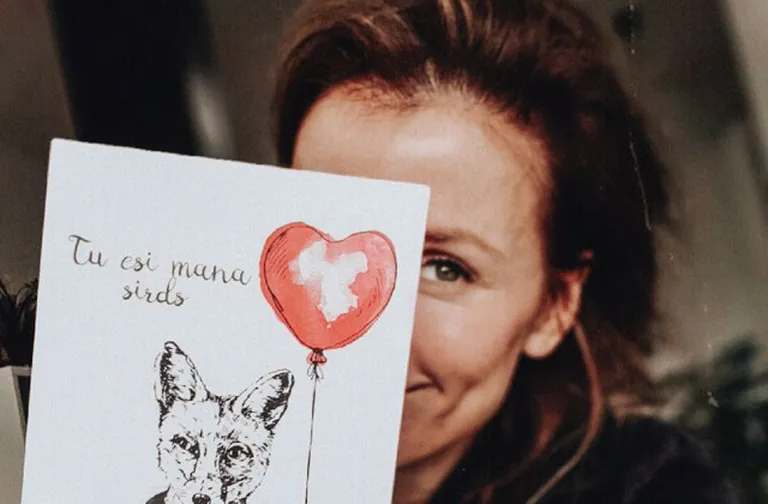 Tu esi mana
sirds